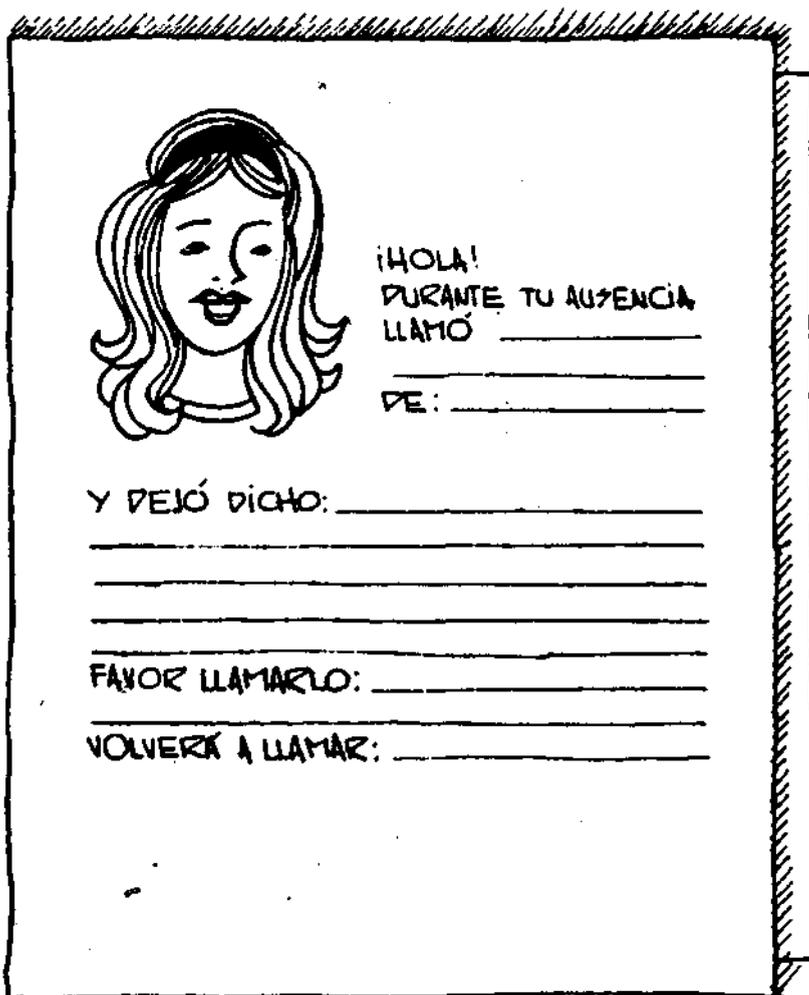 ¡HOLA!
DURANTE TU AUSENCIA
LLAMÓ
DE:
Y DEJÓ DICHO:
FAVOR LLAMARLO:
VOLVERÁ A LLAMAR: